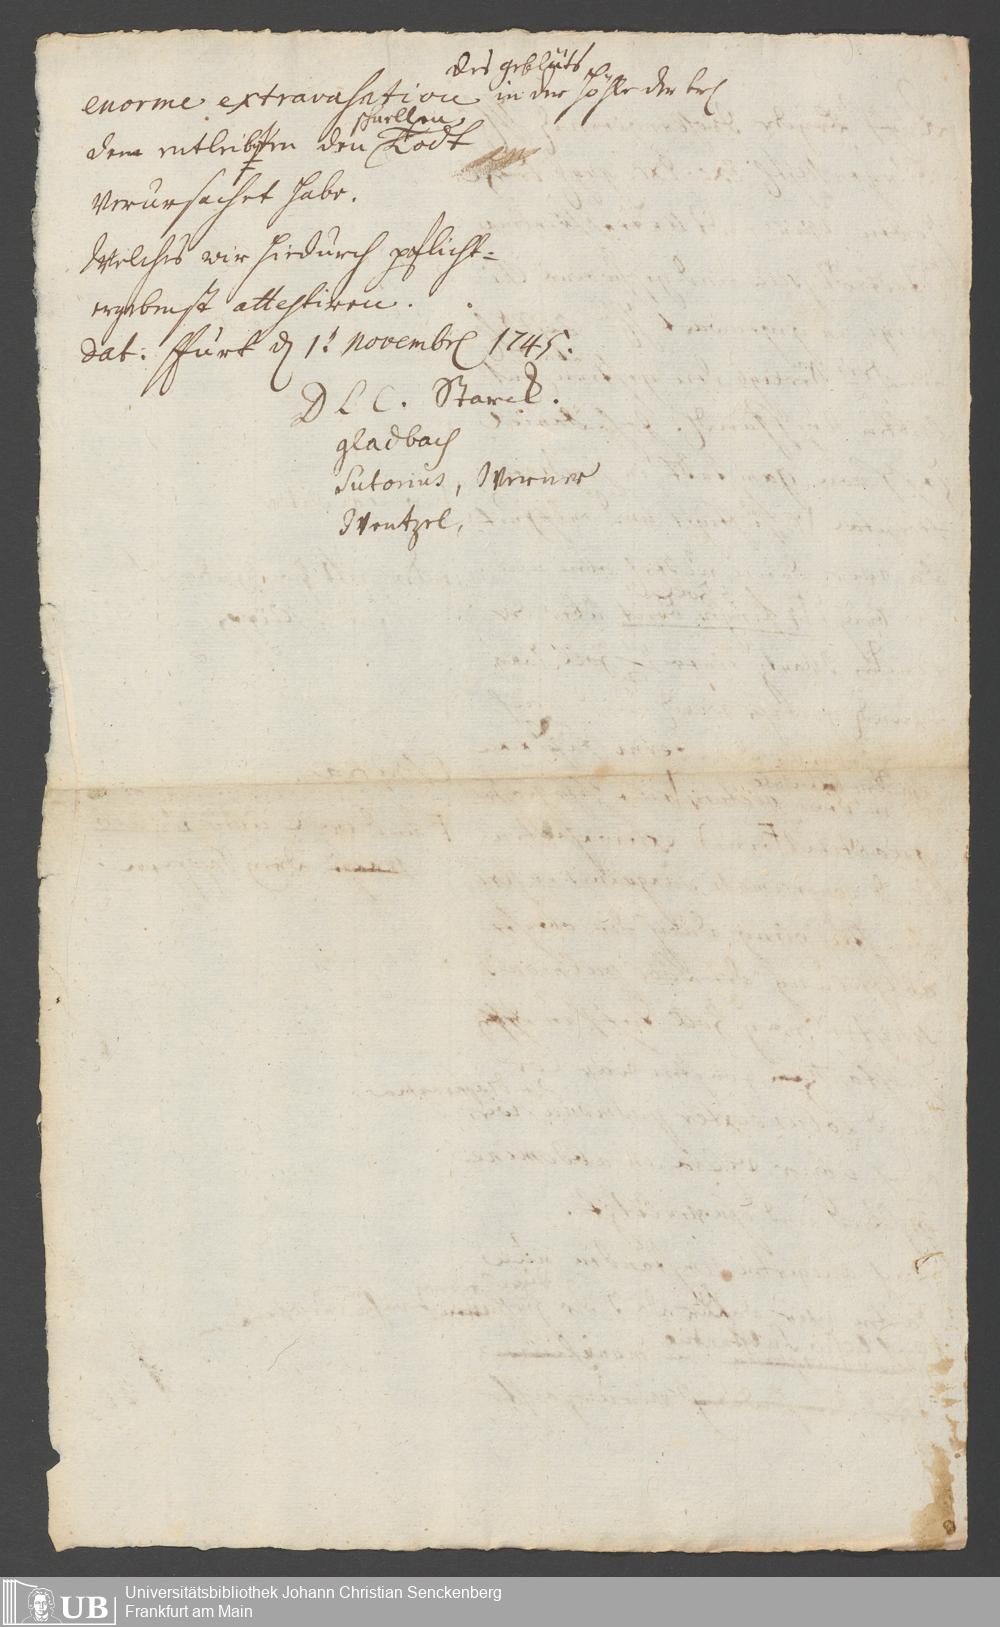 enorme extravasation des geblüts in der Höhle der brust
dem entleibten den schnellen Todt
verursachet habe.
Welches wir hiedurch pflicht=
ergebenst attestiren.
dat. Ffurt d 1.t Novembr 1745.
D L C. Starck.
Gladbach
Sutorius, Werner
Wentzel,
UB
Universitätsbibliothek Johann Christian Senckenberg
Frankfurt am Main